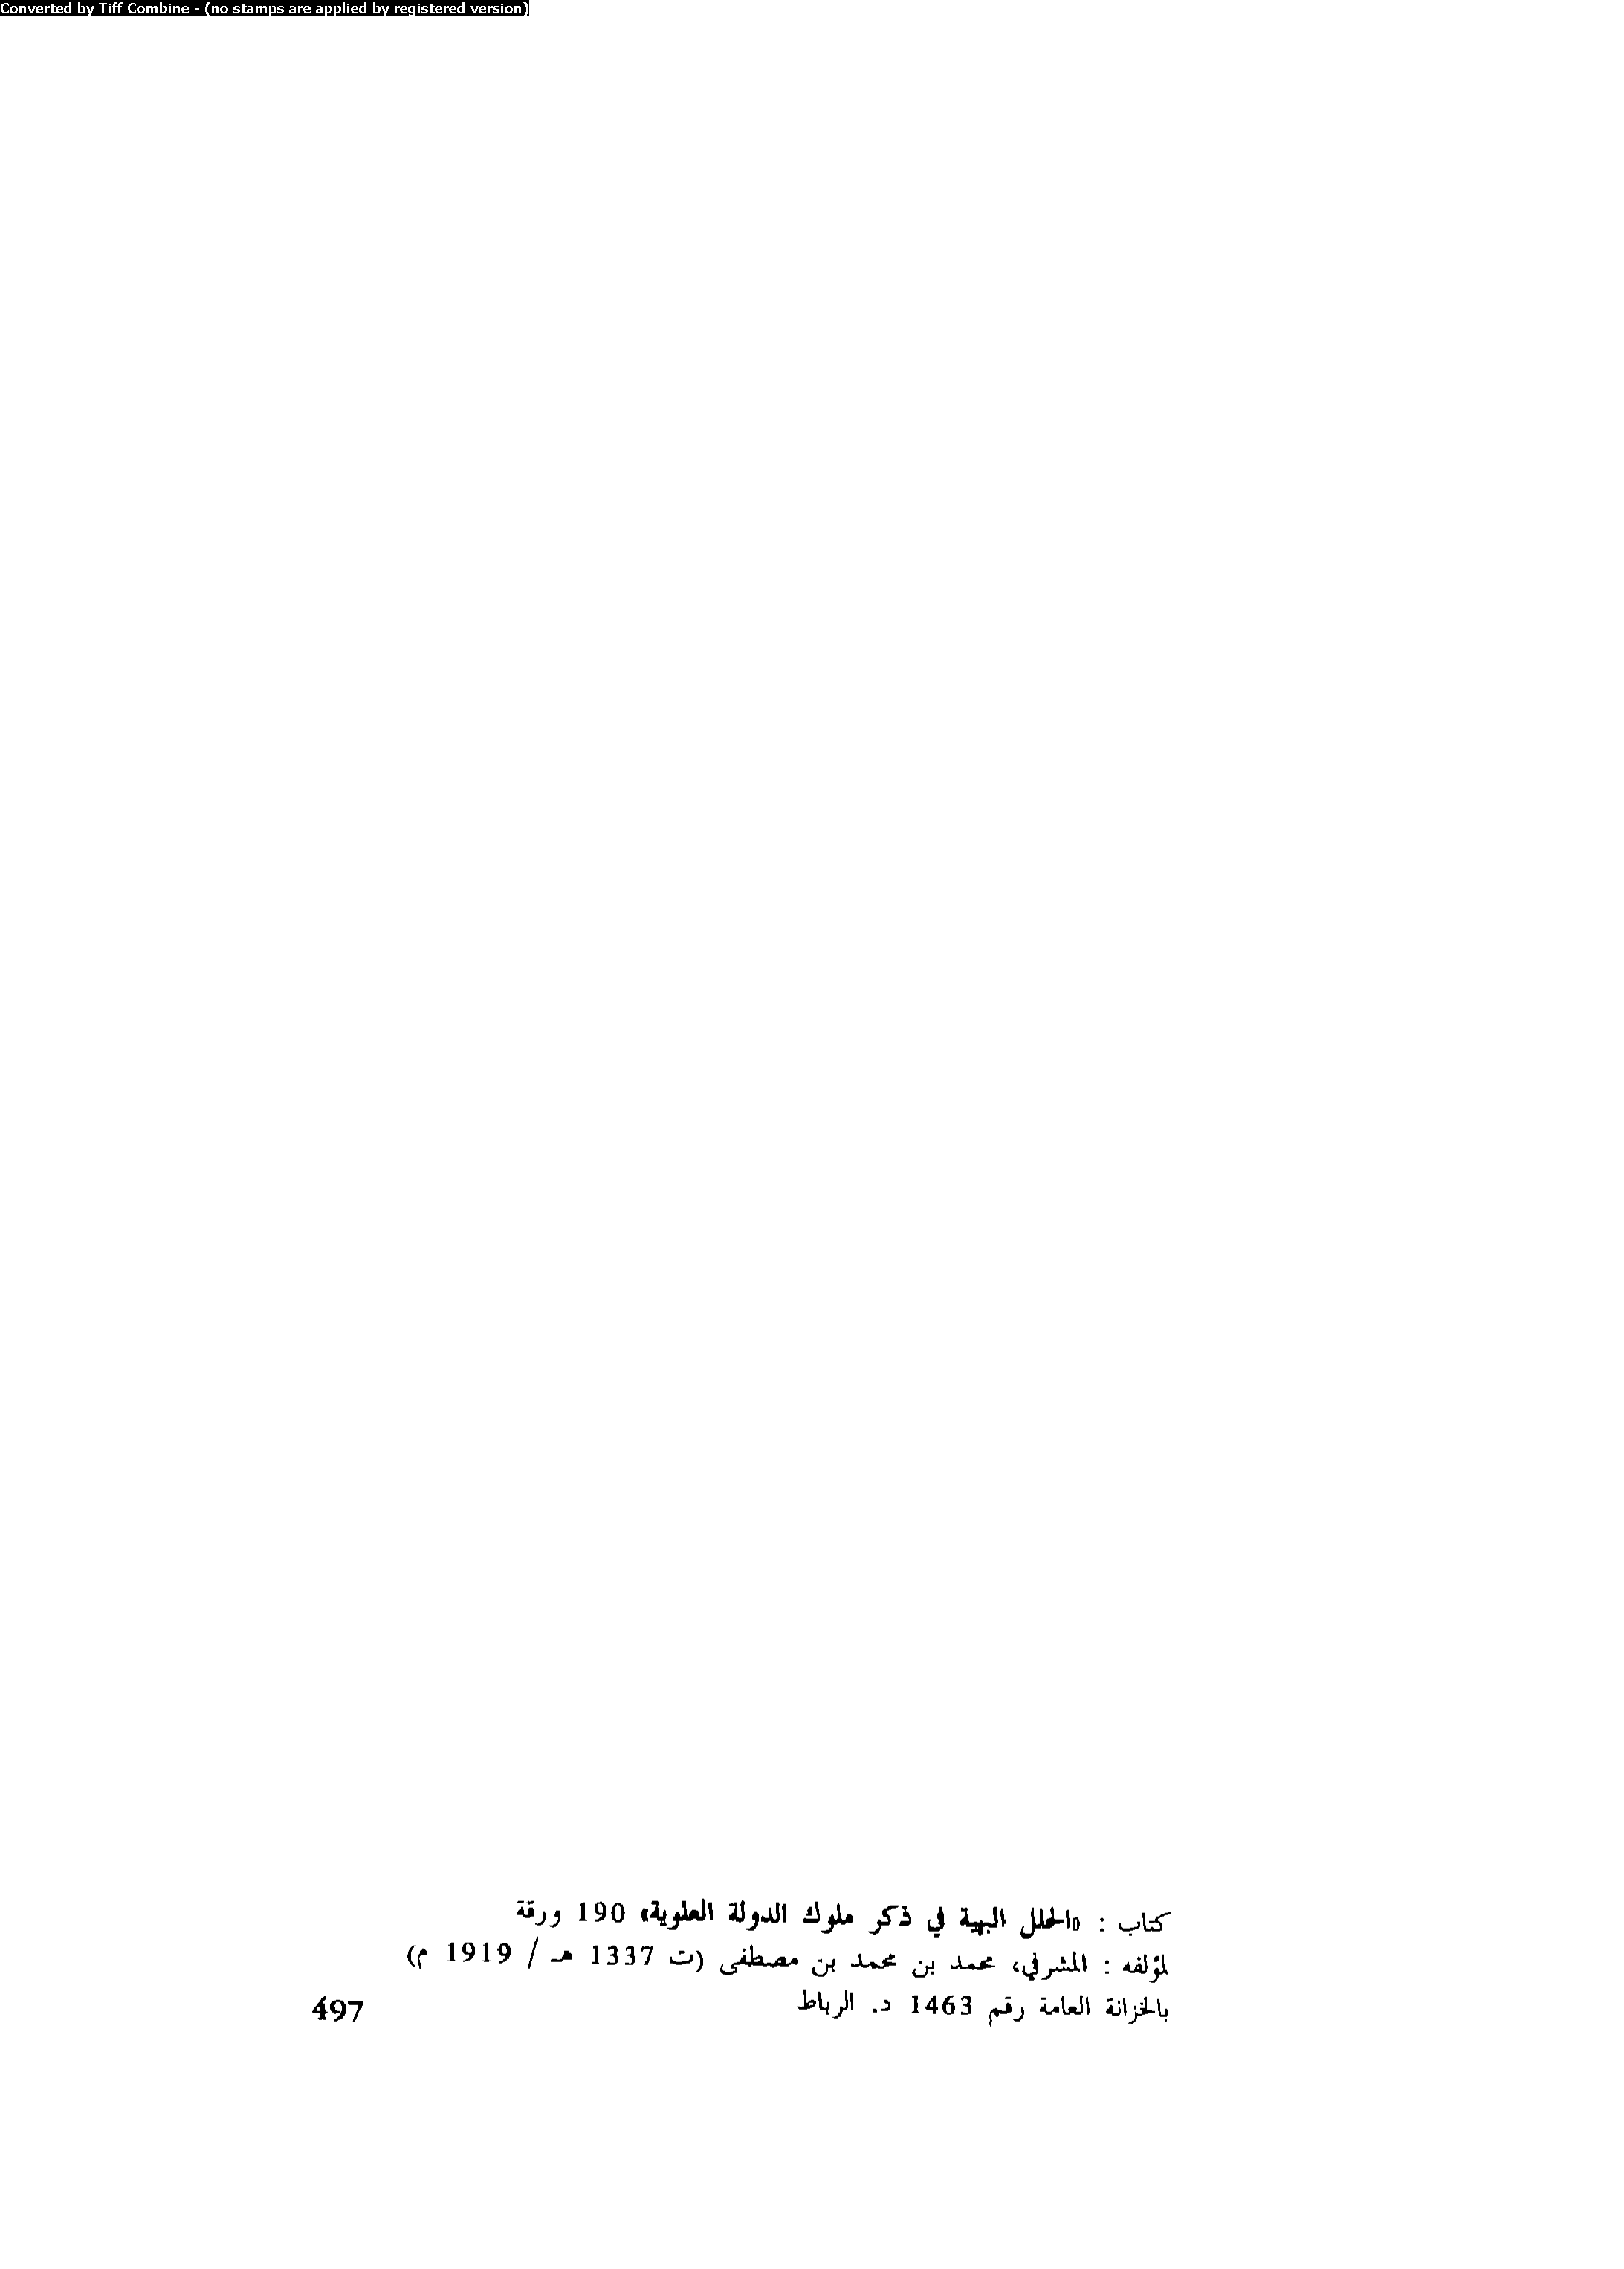 Converted by Tiff Combine - (no stamps are applied by registered version)
كتاب : «الحلل البهية في ذكر ملوك الدولة العلوية» 190 ورقة
لمؤلفه : المشرفي، محمد بن محمد بن مصطفى (ت 1337 هـ / 1919 م)
بالخزانة العامة رقم 1463 د. الرباط
497